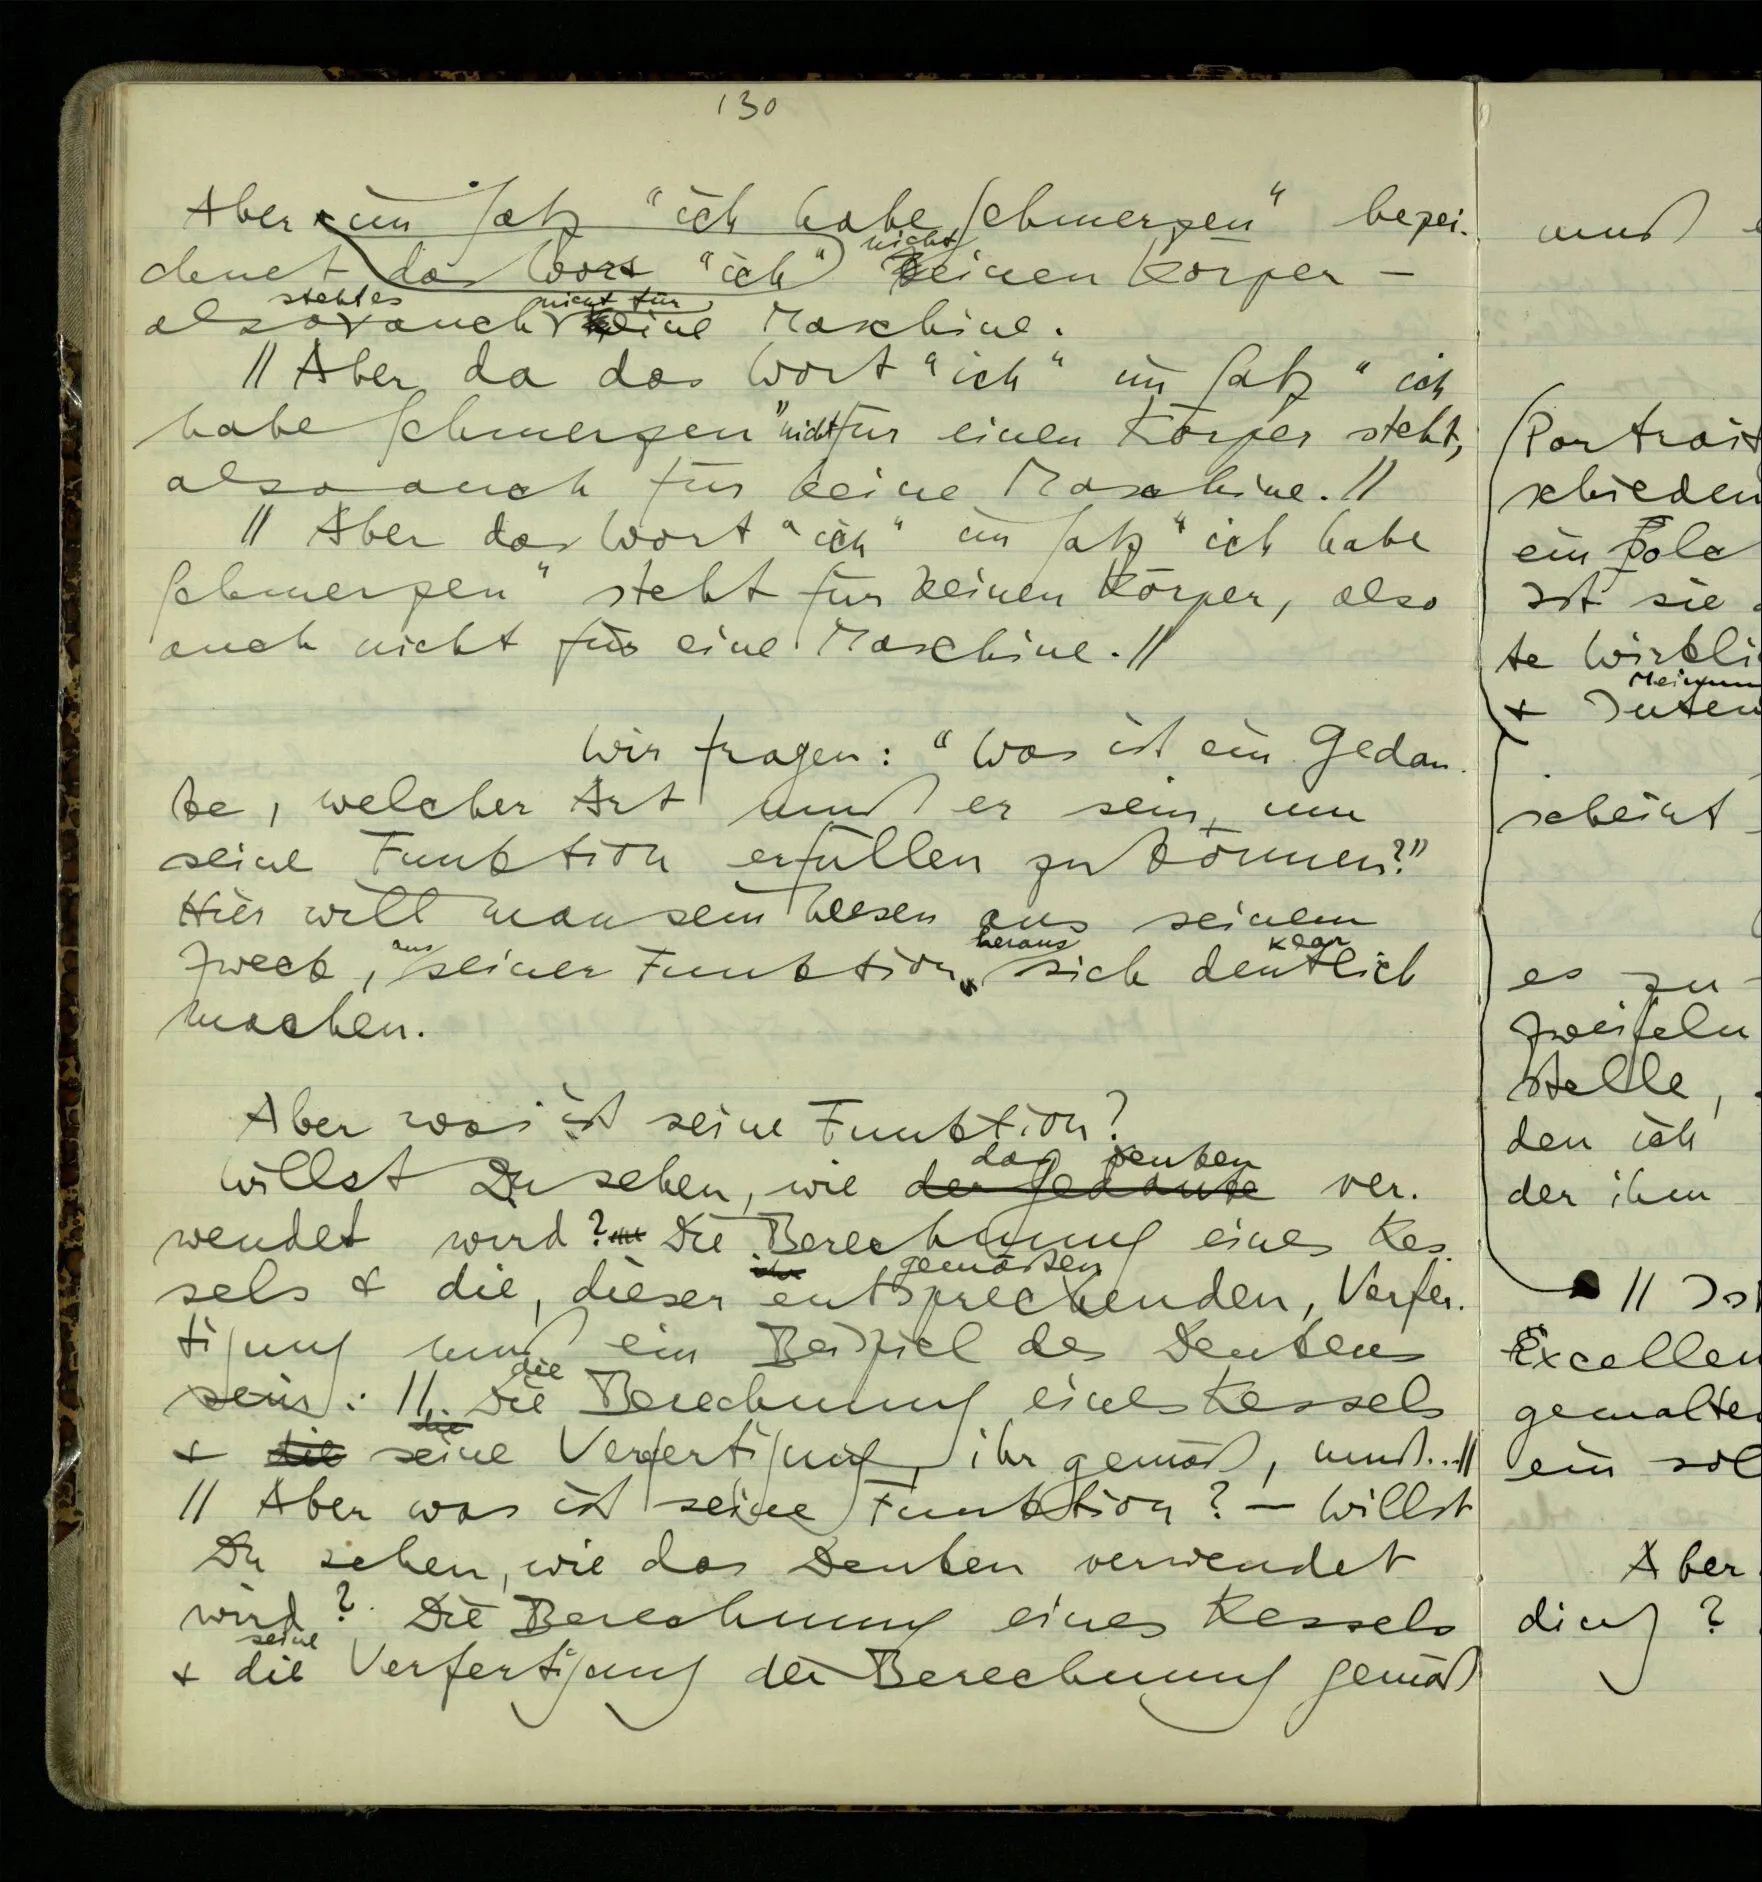 130
Aber im Satz "ich habe Schmerzen" bezei-
chnet das Wort "ich" nicht keinen Körper –
steht es nicht für
also auch keine Maschine.
// Aber da das Wort "ich" im Satz "ich
habe Schmerzen" nicht für einen Körper steht,
also auch für keine Maschine. //
// Aber das Wort "ich" im Satz "ich habe
Schmerzen" steht für keinen Körper, also
auch nicht für eine Maschine. //
Wir fragen: "Was ist ein Gedan-
ke, welcher Art muß er sein, um
seine Funktion erfüllen zu können?"
Hier will man sein Wesen aus seinem
aus heraus klar
Zweck, seiner Funktion, sich deutlich
machen.
Aber was ist seine Funktion?
das Denken
Willst Du sehen, wie der Gedanke ver-
wendet wird? Die Berechnung eines Kes-
gemäßen
sels & die, dieser entsprechenden, Verfer-
tigung muß ein Beispiel des Denkens
die
sein: //. Die Berechnung eines Kessels
die
& die seine Verfertigung, ihr gemäß, muß... //
// Aber was ist seine Funktion? – Willst
Du sehen, wie das Denken verwendet
wird? Die Berechnung eines Kessels
seine
& die Verfertigung der Berechnung gemäß
muß
(Portrait
schieden
ein
Ist sie
te Wirkli
Meinun
& Inten
scheint
es zu
zweifeln
Stelle,
den ich
der ihm
// Ist
Excellen
gemalte
ein sol
Aber
ding?